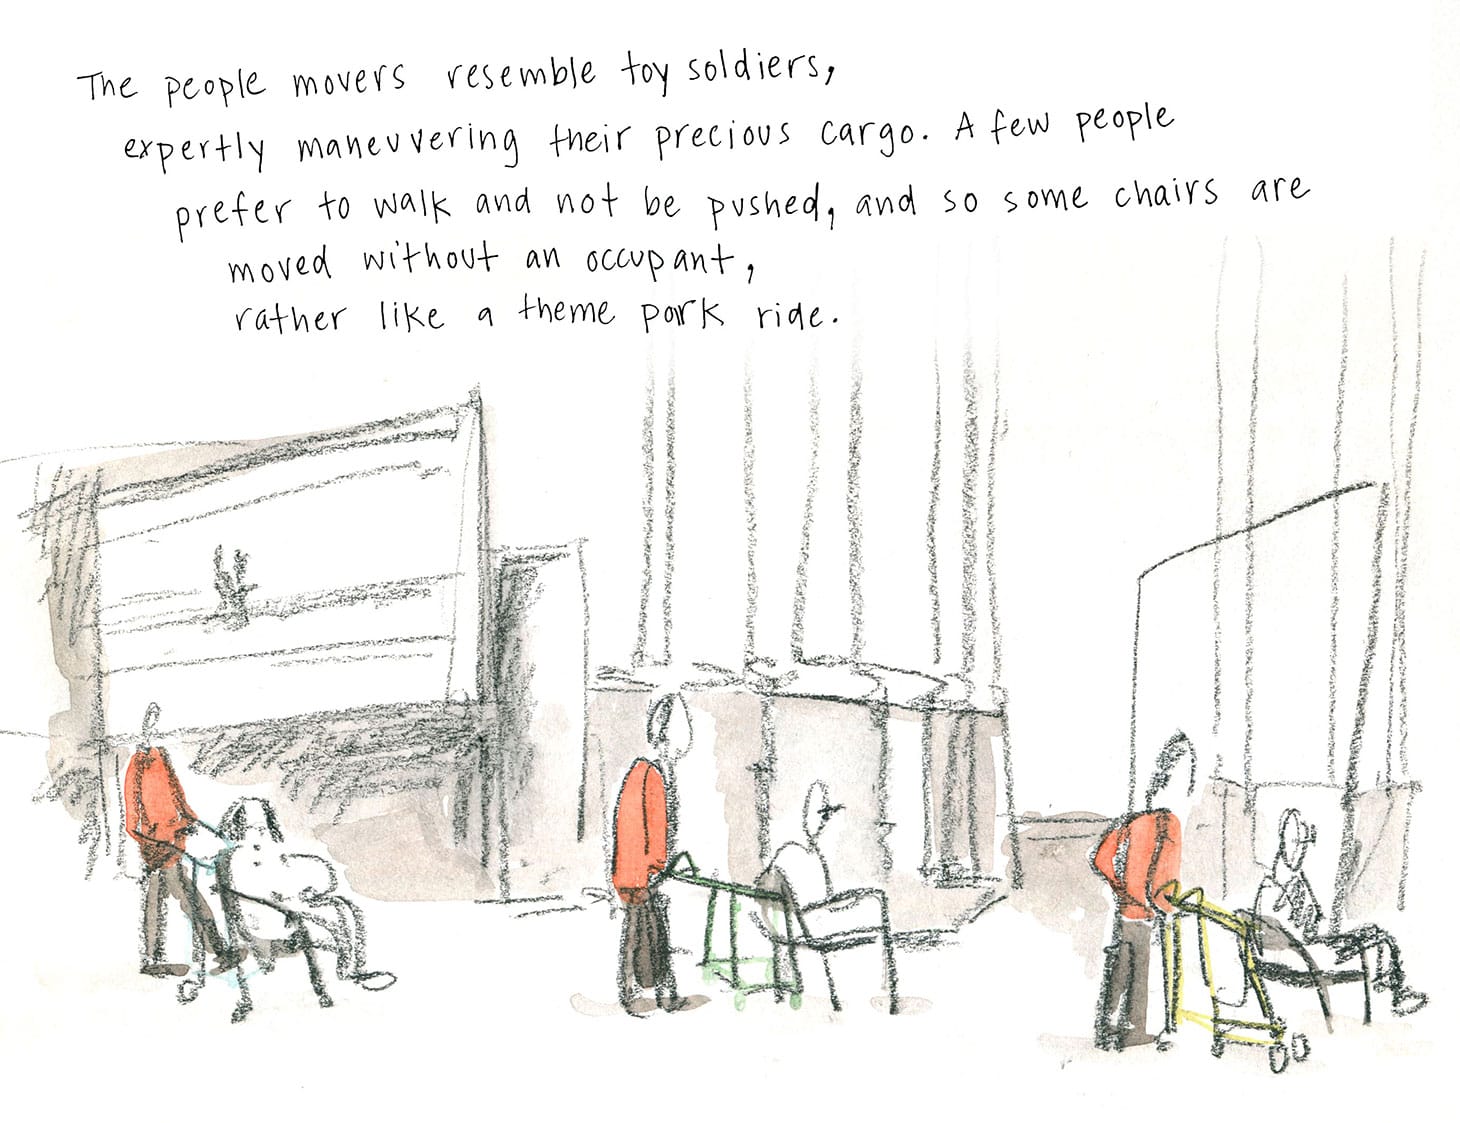 The people movers resemble toy soldiers,
expertly maneuvering their precious cargo. A few people
prefer to walk and not be pushed, and so some chairs are
moved without an occupant,
rather like a theme park ride.